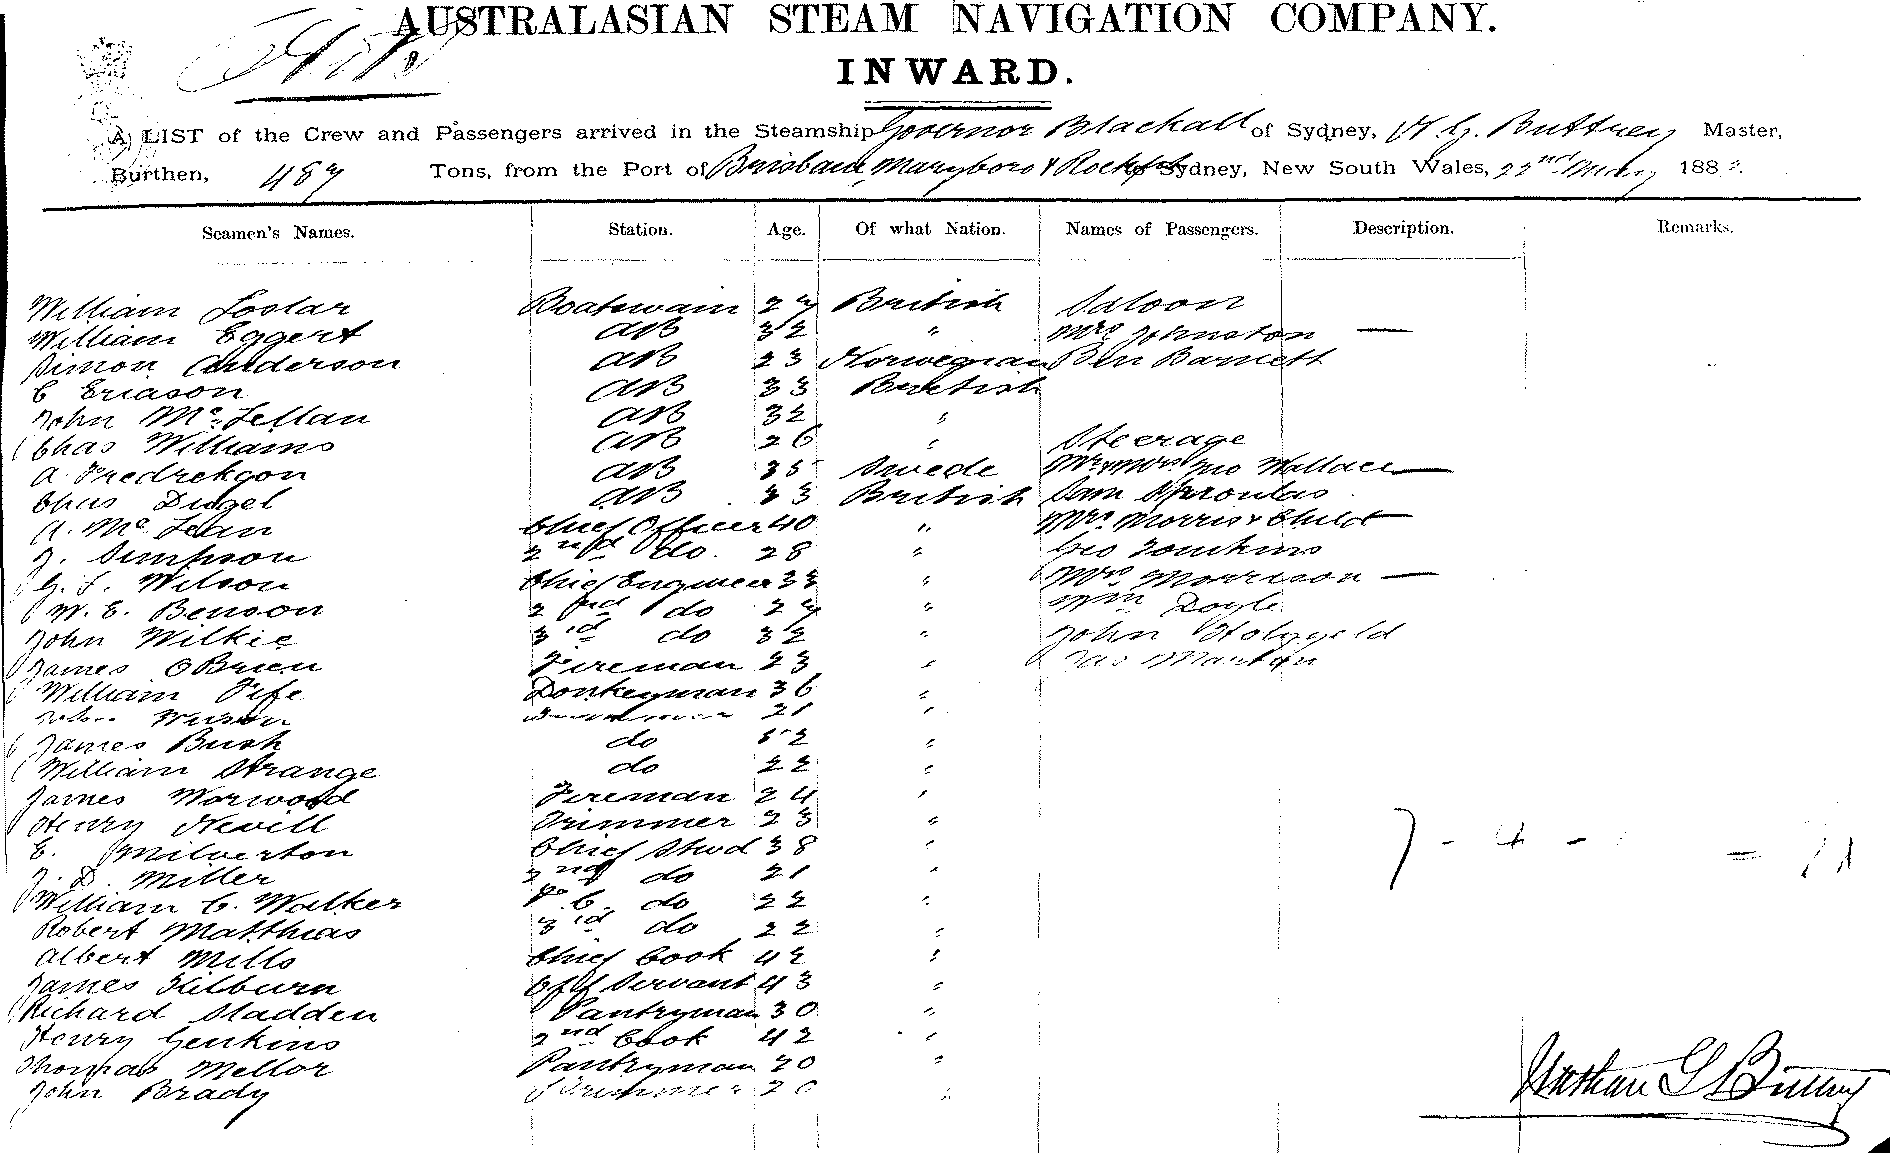 AUSTRALASIAN STEAM NAVIGATION COMPANY.
INWARD.
A LIST of the Crew and Passengers arrived in the Steamship Governor Blackall of Sydney, N G. Buttrey Master,
Burthen, 487 Tons, from the Port of Brisbane, Maryboro & Rockptn Sydney, New South Wales, 22nd 188
Seamen's Names. Station. Age. Of what Nation. Names of Passengers. Description. Remarks.
William Boatswain 27 British Saloon
William Eggert AB 32 " Mrs Johnston —
Simon Anderson AB 23 Norwegian Ben Barnett
C Ericson AB 33 British
John McLellan AB 32 "
Chas Williams AB 26 " Steerage
A. Fredrekson AB 35 Swede Mr & Mrs Geo Wallace —
Chas Dugel AB 33 British Sam
A. McLean Chief Officer 40 " Mrs Morris & Child —
J. Simpson 2nd do. 28 " Geo Tomkins
G. S. Wilson Chief Engineer 33 " Mrs Morrison —
W. E. Benson 2nd do 27 " Wm Doyle
John Wilkie 3rd do 32 " John
James OBrien Fireman 23 " Jas
William Fife Donkeyman 36 "
21 "
James Bush do 52 "
William Strange do 22 "
James Worwood Fireman 24 "
Henry Nevill Trimmer 23 "
E. Milverton Chief Stwd 38 "
J. D. Miller 2nd do 21 "
William C. Walker F. C. do 22 "
Robert Matthias 3rd do 22 "
Albert Mills Chief Cook 42 "
James Kilburn Off Servant 43 "
Richard Madden Pantryman 30 "
Henry Jenkins 2nd Cook 42 "
Thomas Mellor Pantryman 20 "
John Brady Trimmer 20 "
7 - 4 - = 11
Nathan G Buttrey